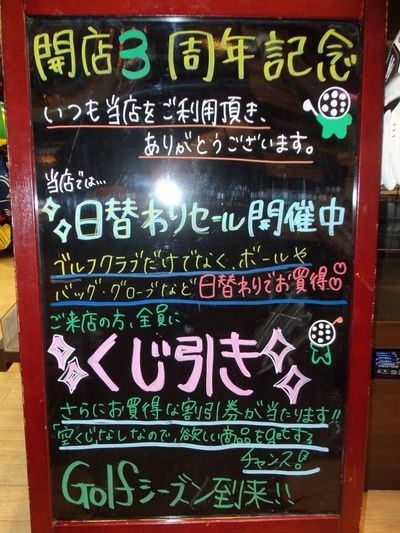 開店3周年記念
いつも当店をご利用頂き、
ありがとうございます。
当店では…
日替わりセール開催中
ゴルフクラブだけでなく、ボールや
バッグ・グローブなど日替わりでお買得♡♡
ご来店の方、全員に
くじ引き
さらにお買得な割引券が当たります!!
「空くじなしなので、欲しい商品をgetする
チャンス!
Golfシーズン到来!!